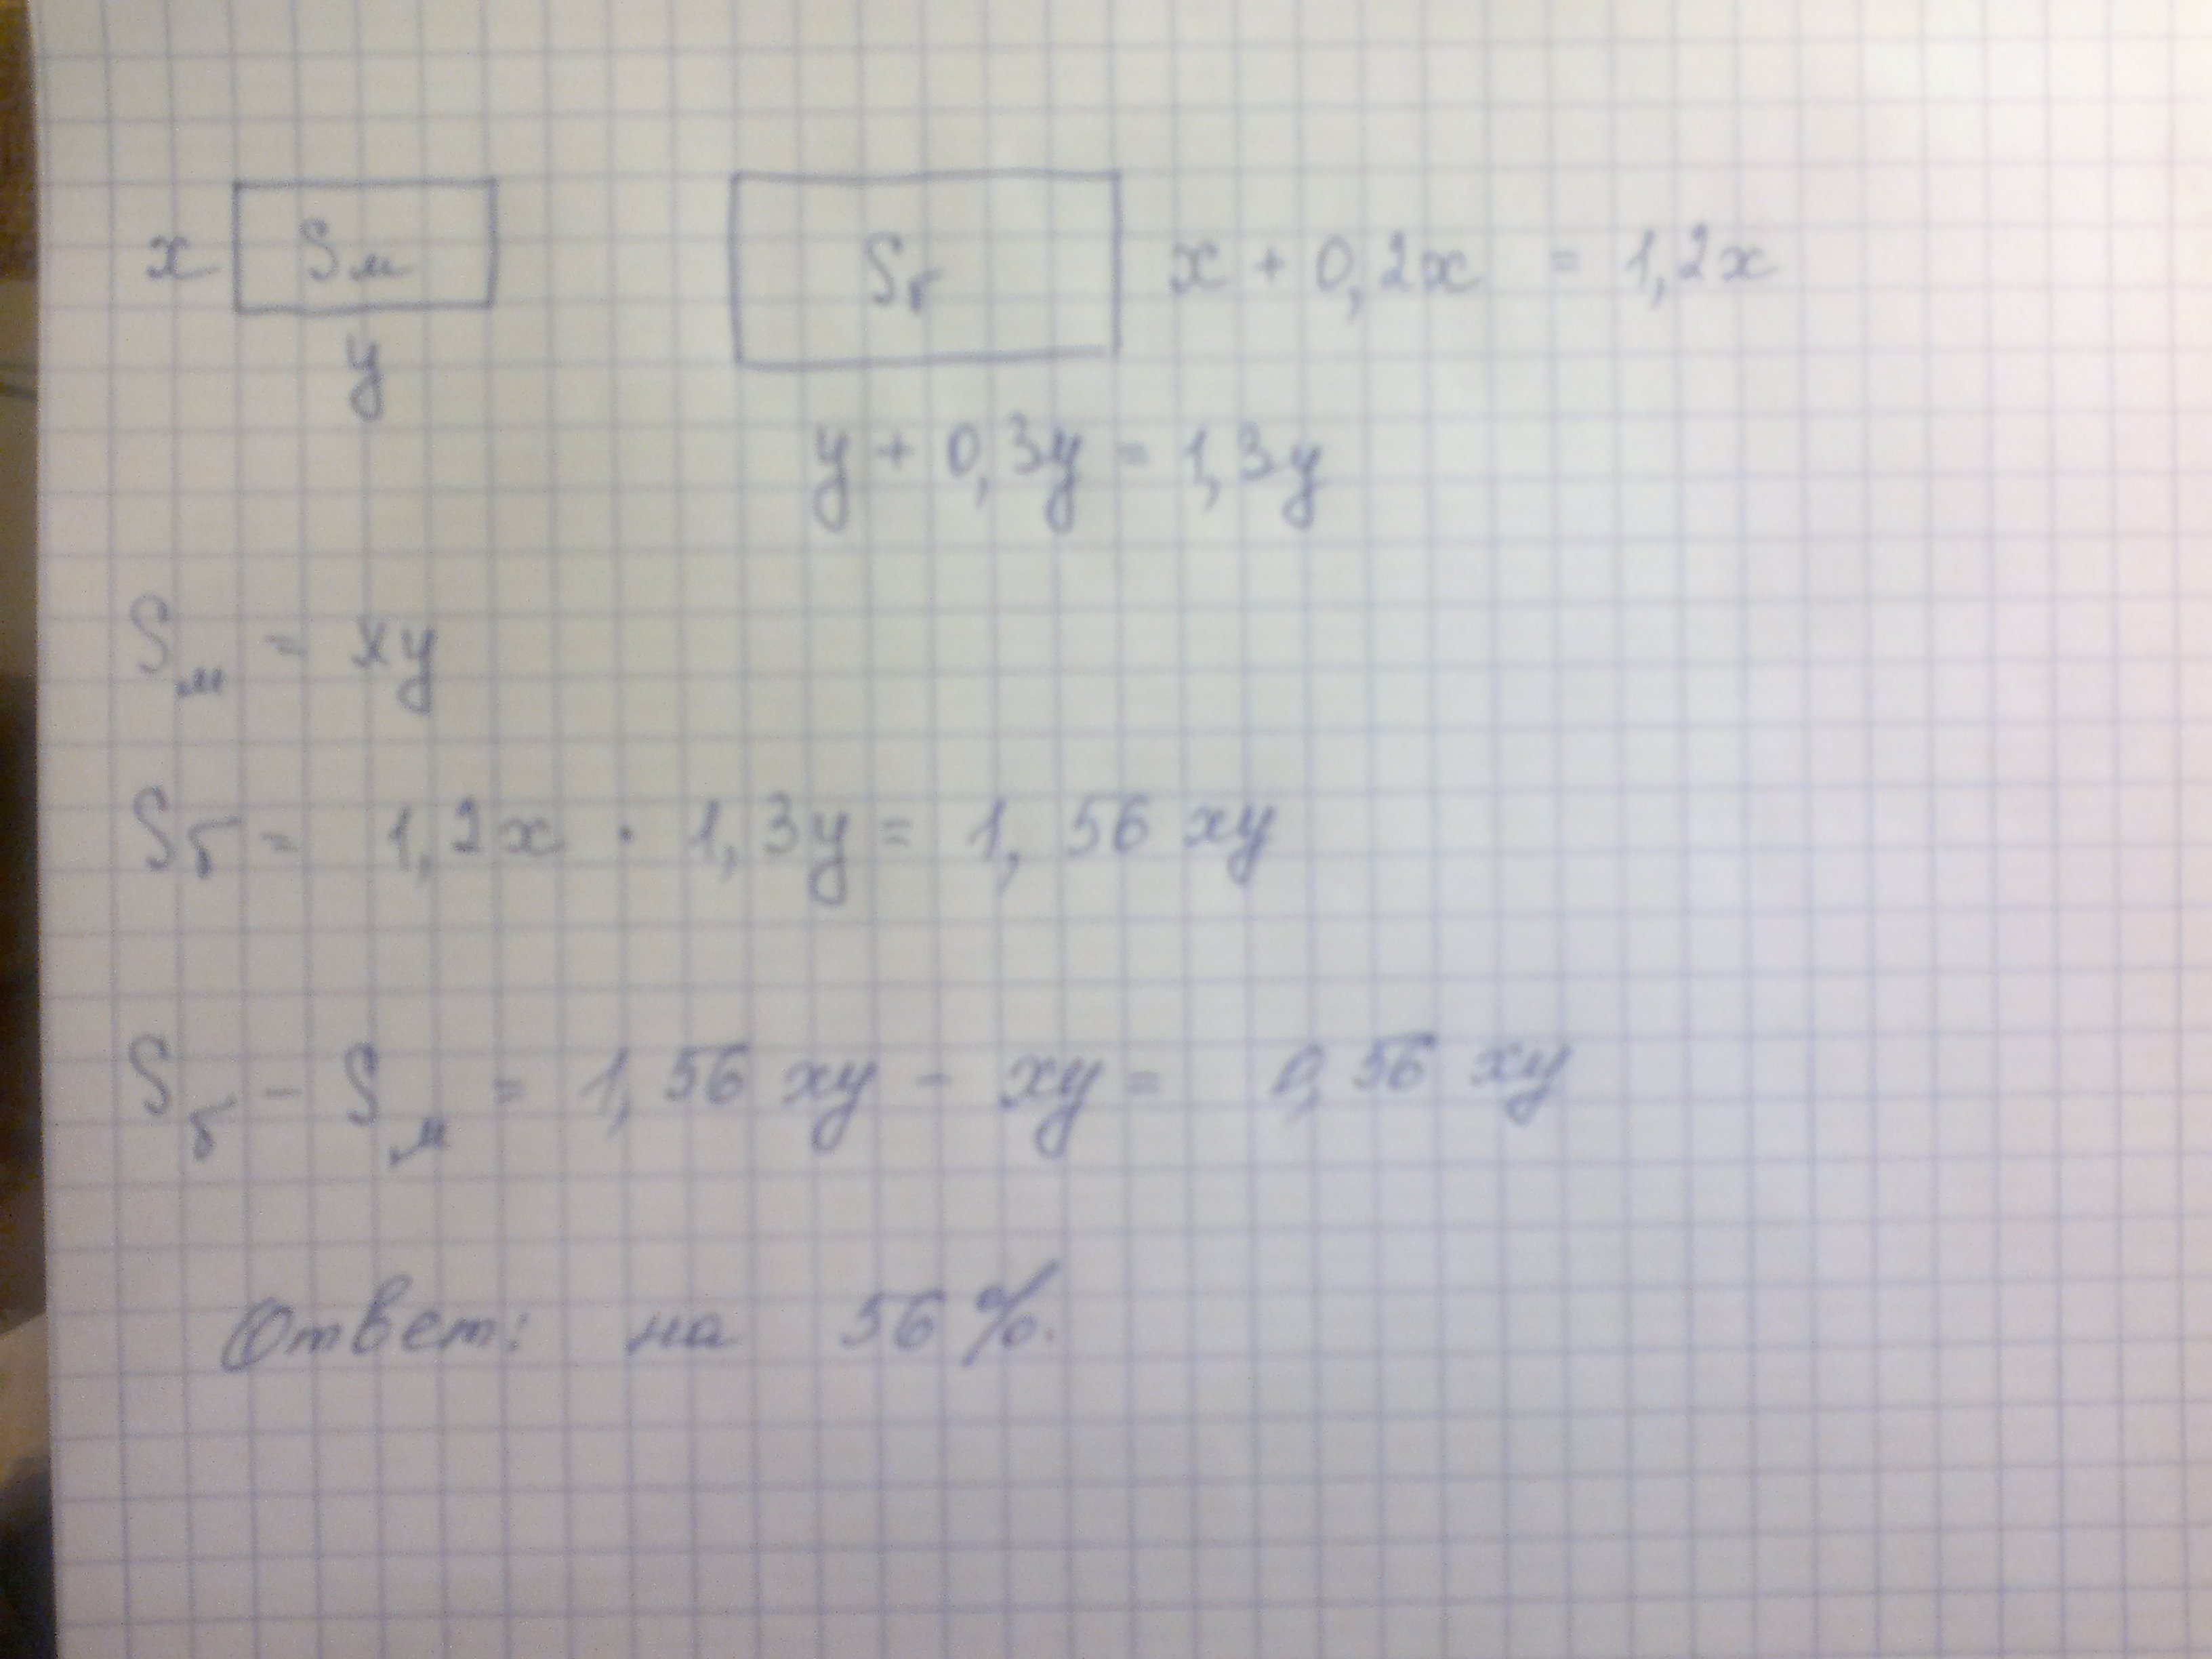 x Sм Sб x + 0,2x = 1,2x
y
y + 0,3y = 1,3y
Sм = xy
Sб = 1,2x · 1,3y = 1,56 xy
Sб - Sм = 1,56 xy - xy = 0,56 xy
Ответ: на 56%.